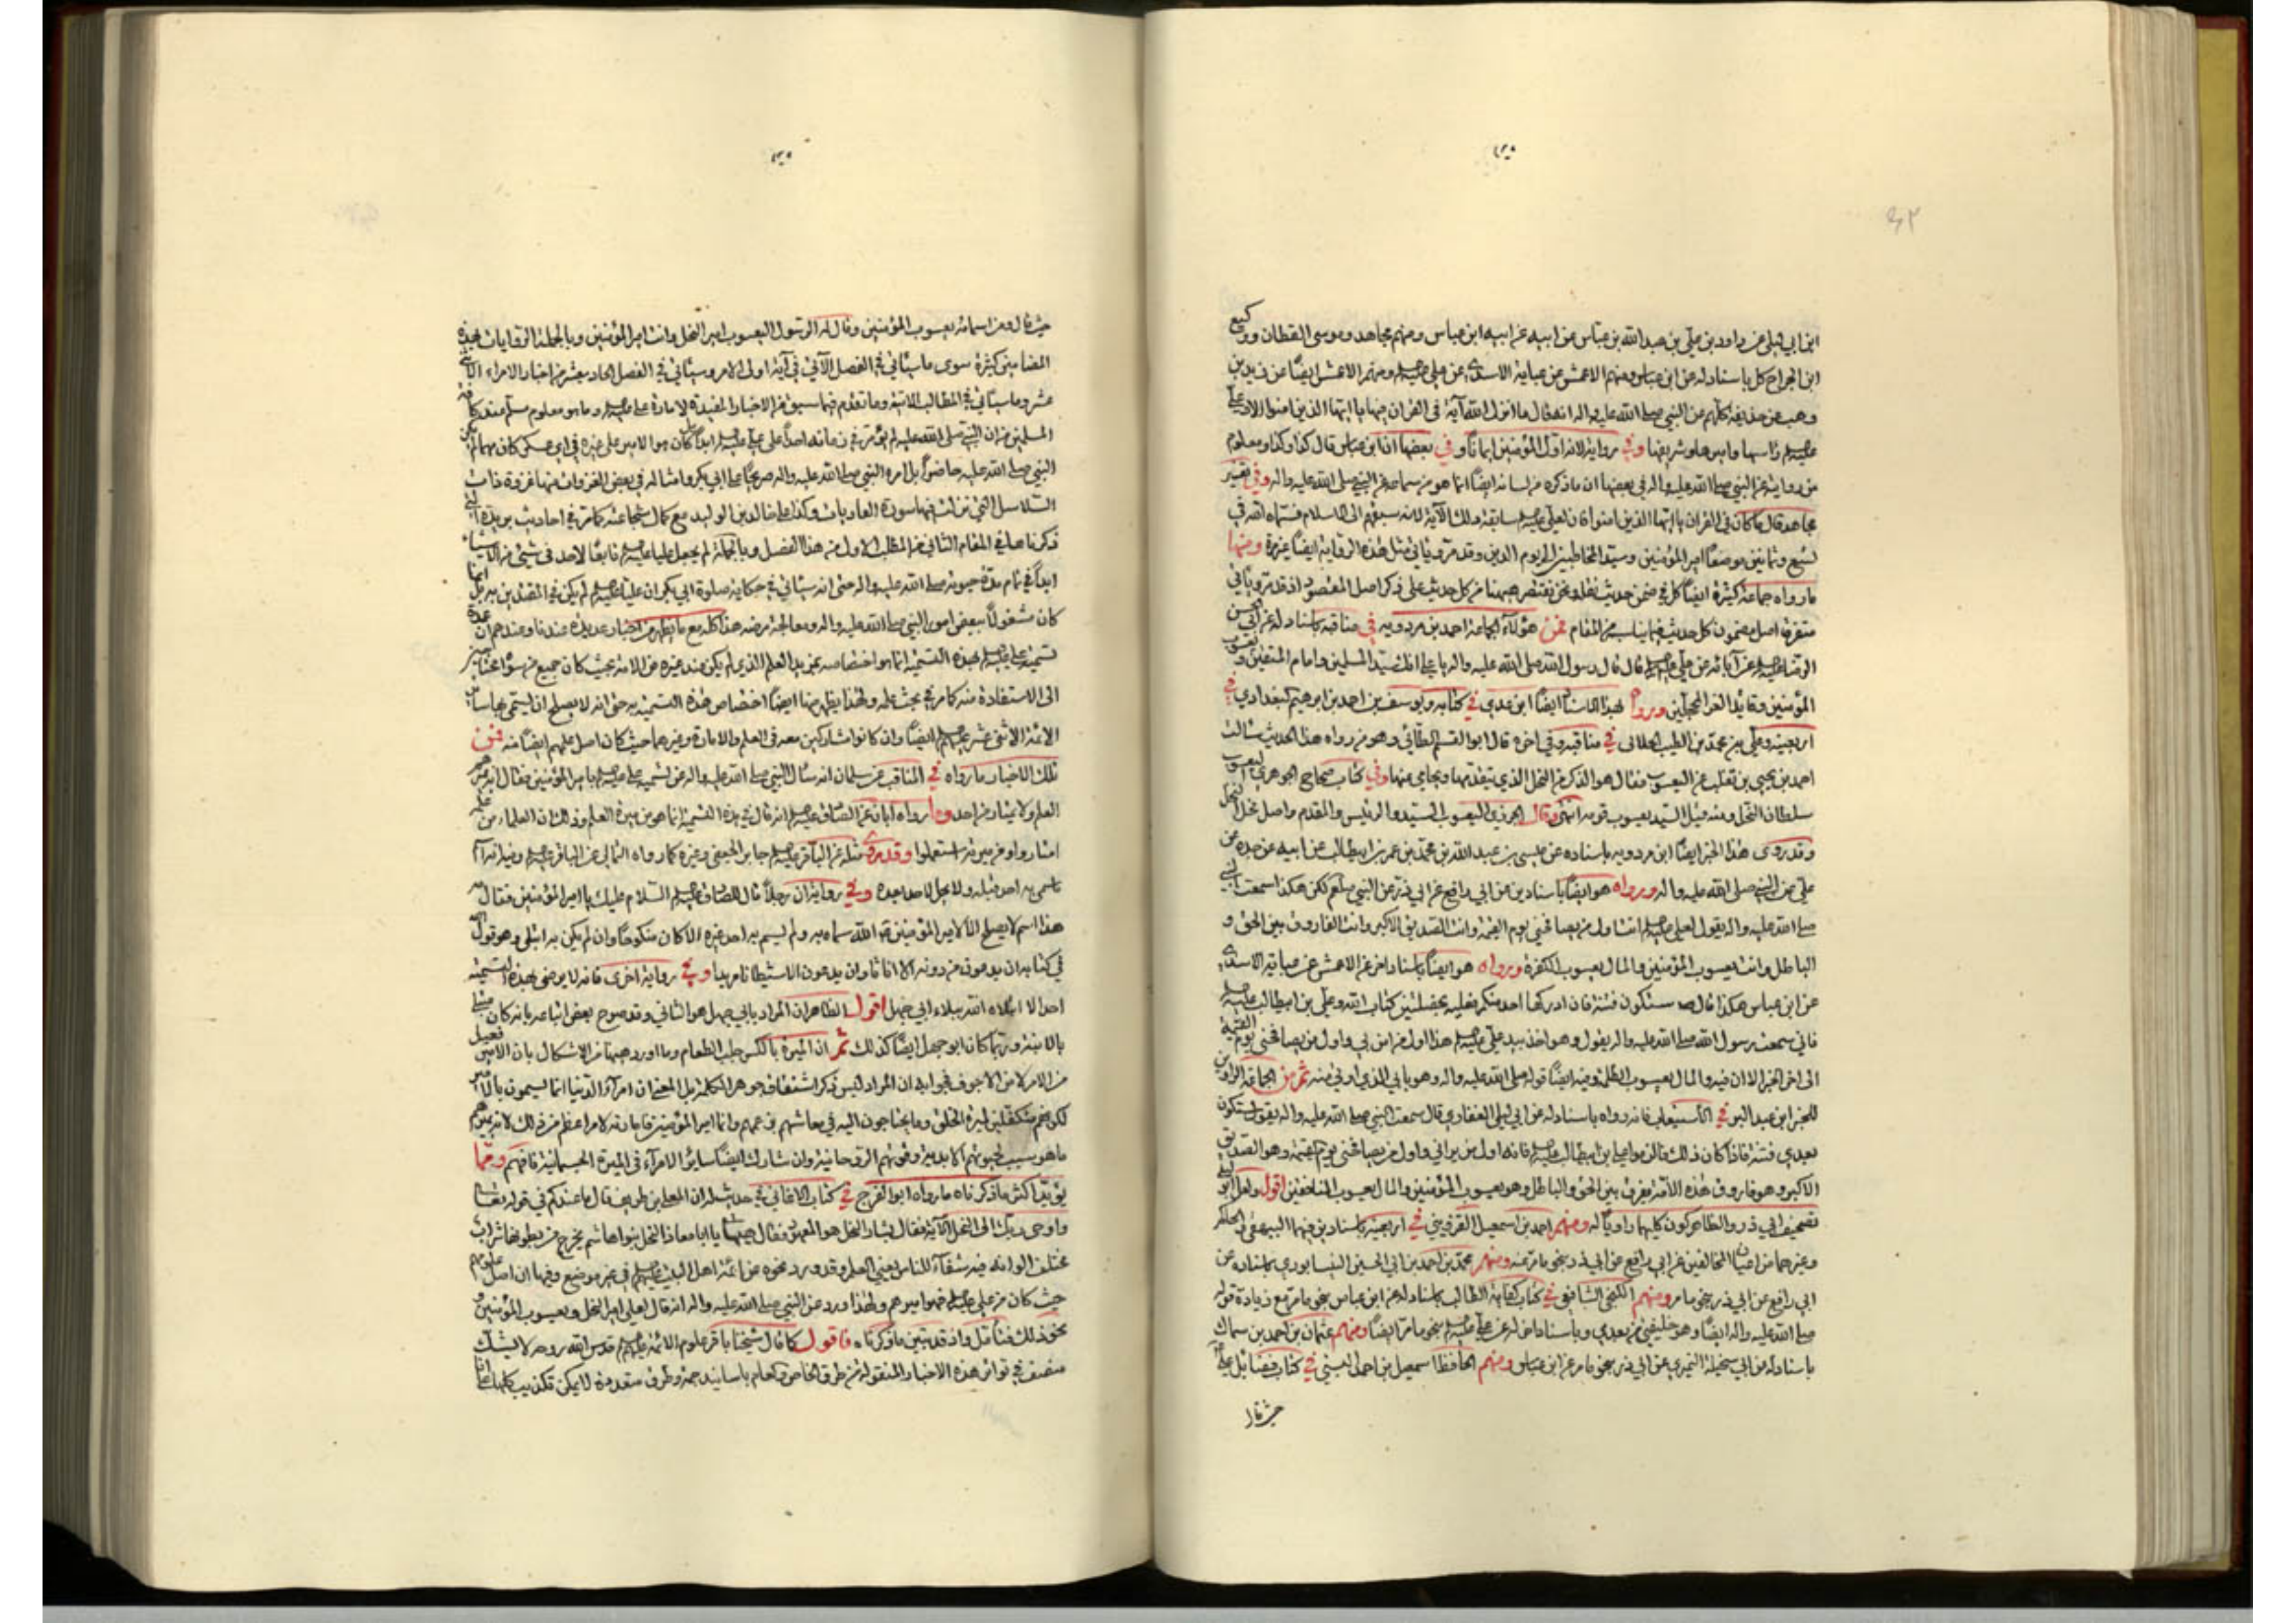 ابن ابي ليلى عن داود بن علي بن عبد الله بن عباس عن ابيه عن ابيه ابن عباس ومنهم مجاهد وموسى القطان ووكيع
ابن الجراح كل باسناد له عن ابن عباس ومنهم الاعمش عن عباية الاسدي عن علي عليه السلم ومنهم الاعمش ايضاً عن زيد بن
وهب عن حذيفة كلهم عن النبي صلى الله عليه واله انه قال ما انزل الله آية في القران فيها يا ايها الذين امنوا الا وعلي
عليه السلم رأسها واميرها وشريفها وفي رواية الا انه اول المؤمنين ايماناً وفي بعضها ان ابن عباس قال كذا وكذا ومعلوم
من رواية عن النبي صلى الله عليه واله في بعضها ان ما ذكره من لسانه ايضاً انما هو من سماعه من النبي صلى الله عليه واله وفي تفسير
مجاهد قال ما كان في القران يا ايها الذين امنوا فان لعلي عليه السلم سابقة ذلك الآية لانه سبقهم الى الاسلام فسماه الله في
تسع وثمانين موضعاً امير المؤمنين وسيد المخاطبين الى يوم الدين وقد مر وياتي مثل هذه الرواية ايضاً غيره ومنها
ما رواه جماعة كثيرة ايضاً كل في ضمن حديث نقله ونحن نقتصر هيهنا من كل حديث على ذكر اصل المقصود اذ قد مر وياتي
متفرقة اصل مضمون كل حديث فيما يناسب المقام فمن هؤلاء الجماعة احمد بن مردويه في مناقبه باسناد له عن ابي الحسن
الرضا عليه السلم عن آبائه عن علي عليه السلم قال قال رسول الله صلى الله عليه واله يا علي انك سيد المسلمين وامام المتقين ويعسوب
المؤمنين وقائد الغر المحجلين وروا بهذا الاسناد ايضاً ابن عدي في كتابه ويوسف بن احمد بن ابرهيم البغدادي في
اربعينه وعلي بن محمد بن الطيب الجلالى في مناقبه وفي اخره قال ابو القسم الطائي وهو من رواه هذا الحديث سالت
احمد بن يحيى بن تغلب عن اليعسوب فقال هو الذكر من النحل الذي يتقدمها ويحامي عنها وفي كتاب صحاح الجوهري اليعسوب
سلطان النحل ومنه قيل السيد يعسوب قومه انتهى وقال الجزري اليعسوب السيد والرئيس والمقدم واصل فحل النحل
وقد روى هذا الخبر ايضاً ابن مردويه باسناده عن عيسى بن عبد الله بن محمد بن عمر بن ابيطالب عن ابيه عن جده عن
علي عن النبي صلى الله عليه واله ورواه هو ايضاً باسنادين عن ابي رافع عن ابي ذر عن النبي صلعم لكن هكذا سمعت النبي
صلى الله عليه واله يقول لعلي عليه السلم انت اول من يصافحني يوم القيمة وانت الصديق الاكبر وانت الفاروق بين الحق و
الباطل وانت يعسوب المؤمنين والمال يعسوب الكفرة ورواه هو ايضاً باسناد اخر عن الاعمش عن عباية الاسدي
عن ابن عباس هكذا قال ستكون فتنة فان ادركها احد منكم فعليه بخصلتين كتاب الله وعلي بن ابيطالب عليه السلم
فاني سمعت رسول الله صلى الله عليه واله يقول وهو اخذ بيد علي عليه السلم هذا اول من امن بي واول من يصافحني يوم القيمة
الى اخر الخبر الا ان فيه والمال يعسوب الظلمة وفيه ايضاً قوله صلى الله عليه واله وهو بابي الذي اوتى منه ثم من الجماعة الراوين
للخبر ابن عبد البر في الاستيعاب فانه رواه باسناد له عن ابي ليلى الغفاري قال سمعت النبي صلى الله عليه واله يقول ستكون
بعدي فتنة فاذا كان ذلك فالزموا علي بن ابيطالب عليه السلم فانه اول من يراني واول من يصافحني يوم القيمة وهو الصديق
الاكبر وهو فاروق هذه الامة يفرق بين الحق والباطل وهو يعسوب المؤمنين والمال يعسوب المنافقين اقول ولعل ابو ليلى
تصحيف ابي ذر والظاهر كون كليهما راوياً له ومنهم احمد بن اسمعيل القزويني في اربعينه باسنادين فيهما البيهقي والحاكم
وغيرهما من اعيان المخالفين عن ابي رافع عن ابي ذر بنحو ما مر عنه ومنهم محمد بن احمد بن ابي الحسين النيسابوري باسناده عن
ابي رافع عن ابي ذر بنحو ما مر ومنهم الكنجي الشافعي في كتاب كفاية الطالب باسناد له عن ابن عباس بنحو ما مر مع زيادة قوله
صلى الله عليه واله ايضاً وهو خليفتي من بعدي وباسناد اخر له عن علي عليه السلم بنحو ما مر ايضاً ومنهم عثمان بن احمد بن سماك
باسناد له عن ابي سخيلة النميري عن ابي ذر بنحو ما مر عن ابن عباس ومنهم الحافظ اسمعيل بن احمد البستي في كتاب فضائل علي
حيث قال
حيث قال ومن اسمائه يعسوب المؤمنين وقال له الرسول اليعسوب امير النحل وانت امير المؤمنين وبالجملة الروايات بهذه
المضامين كثيرة سوى ما سياتي في الفصل الآتي في آية اولى الامر وسياتي في الفصل الحاد يعشر من اخبار الامراء الاثني
عشر وما سياتي في المطالب الاتية وما تقدم فيما سبق من الاخبار المفيدة لامارة علي عليه السلم وما هو معلوم مسلم عند كافة
المسلمين من ان النبي صلى الله عليه لم يؤمر في زمانه احداً على علي عليه السلم ابداً بل كان هو الامير على غيره في اي عسكر كان مهما لم يكن
النبي صلى الله عليه حاضراً بل امره النبي صلى الله عليه واله صريحاً على ابي بكر وامثاله في بعض الغزوات منها غزوة ذات
السلاسل التي نزلت فيها سورة العاديات وكذا على خالد بن الوليد مع كمال شجاعته كما مر في احاديث بريدة التي
ذكرناها في المقام الثاني من المطلب الاول من هذا الفصل وبالجملة لم يجعل عليا عليه السلم تابعًا لاحد في شيء من الاشياء
ابداً في تمام مدة حيوته صلى الله عليه واله حتى انه سياتي في حكاية صلوة ابي بكر ان علياً عليه السلم لم يكن في المقتدين به بل انما
كان مشغولاً ببعض امور النبي صلى الله عليه واله ومعالجة مرضه هذا كله مع ما يظهر من اخبار عديدة عندنا وعندهم ان عمدة
تسمية علي عليه السلم بهذه التسمية انما هو اختصاصه بمزيد العلم الذي لم يكن عند غيره من الامة بحيث كان جميع من سواه محتاجين
الى الاستفادة منه كما مر في بحث علمه ولهذا يظهر منها ايضاً اختصاص هذه التسمية به حتى انه لا يصلح ان يتسمى بها سائر
الائمة الاثني عشر عليهم السلم ايضاً وان كانوا مشاركين معه في العلم والامارة وغيرهما حيث كان اصل علمهم ايضاً منه فمن
تلك الاخبار ما رواه في المناقب عن سلمان انه سأل النبي صلى الله عليه واله عن تسمية علي عليه السلم بامير المؤمنين فقال انه يميرهم
العلم ولا يمتار من احد وما رواه ابان عن الصادق عليه السلم انه قال في هذه التسمية انما هو من ميرة العلم وذلك ان العلماء من علمه
امتاروا ومن ميرته استعملوا وقد روى مثله عن الباقر عليه السلم جابر الجعفي وغيره كما رواه الثمالي عن الباقر عليه السلم وفيه انه اسم
ما سمي به احد قبله ولا يحل لاحد بعده وفي رواية ان رجلاً قال للصادق عليه السلم السلام عليك يا امير المؤمنين فقال مه
هذا اسم لا يصلح الا لامير المؤمنين فان الله سماه به ولم يسم به احد غيره الا كان منكوحاً وان لم يكن به ابتلى وهو قول الله
في كتابه ان يدعون من دونه الا اناثا وان يدعون الا شيطانا مريدا وفي رواية اخرى فانه لا يرضى بهذه التسمية
احد الا ابتلاه الله ببلاء ابي جهل اقول الظاهر ان المراد بابي جهل هو الثاني وقد صرح بعض اتباعه بانه كان مبتلى
بالابنة وربما كان ابو جهل ايضاً كذلك ثم ان الميرة بالكسر جلب الطعام وما اورد هيهنا من الاشكال بان الامير فعيل
من الامر لا من الاجوف فجوابه ان المراد ليس ذكر اشتقاق جوهر الكلمة بل المعنى ان امراء الدنيا انما يسمون بالامير
لكونهم متكفلين لميرة الخلق وما يحتاجون اليه في معاشهم بزعمهم واما امير المؤمنين فامارته لامر اعظم من ذلك لانه يميرهم
ما هو سبب لحيوتهم الابدية وقوتهم الروحانية وان شارك ايضاً سائر الامراء في الميرة الجسمانية فافهم ومما
يؤيد اكثر ما ذكرناه ما رواه ابو الفرج في كتاب الاغاني في حديث له ان المعلى بن طريف قال ما عندكم في قوله تعالى
واوحى ربك الى النحل الآية فقال بشار النحل هو المعهود فقال هيهات يا ابا معاذ النحل بنو هاشم يخرج من بطونها شراب
مختلف الوانه فيه شفاء للناس يعني العلم وقد ورد نحوه عن ائمة اهل البيت عليهم السلم في غير موضع وفيها ان اصل علومهم
حيث كان من علي عليه السلم فهو اميرهم ولهذا ورد عن النبي صلى الله عليه واله انه قال لعلي امير النحل ويعسوب المؤمنين و
نحو ذلك فتأمل واذ قد تبين ما ذكرناه فاقول كما قال شيخنا باقر علوم الائمة عليهم السلم قدس الله روحه لا يشك
منصف في تواتر هذه الاخبار المنقولة من طرق الخاص والعام باسانيد جمة وطرق متعددة لا يمكن تكذيب كلها